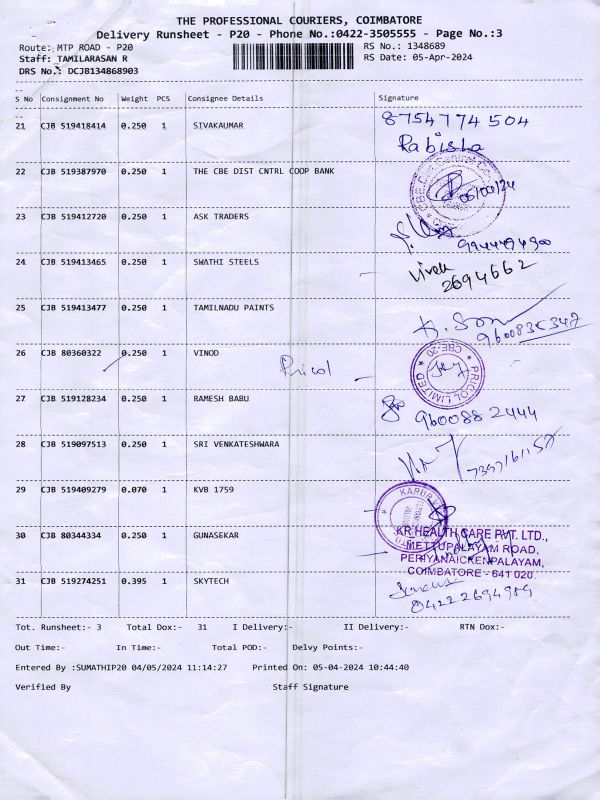 THE PROFESSIONAL COURIERS, COIMBATORE
Delivery Runsheet - P20 - Phone No.:0422-3505555 - Page No.:3
Route: MTP ROAD - P20 RS No.: 1348689
Staff: TAMILARASAN R RS Date: 05-Apr-2024
DRS No.: DCJB134868903
S No Consignment No Weight PCS Consignee Details Signature
21 CJB 519418414 0.250 1 SIVAKAUMAR 8754774504
Rabisha
22 CJB 519387970 0.250 1 THE CBE DIST CNTRL COOP BANK
23 CJB 519412720 0.250 1 ASK TRADERS
24 CJB 519413465 0.250 1 SWATHI STEELS Vivek
2694662
25 CJB 519413477 0.250 1 TAMILNADU PAINTS
26 CJB 80360322 0.250 1 VINOD Pricol PRICOL LIMITED CBE-20
27 CJB 519128234 0.250 1 RAMESH BABU 9600882444
28 CJB 519097513 0.250 1 SRI VENKATESHWARA 7397161157
29 CJB 519409279 0.070 1 KVB 1759
30 CJB 80344334 0.250 1 GUNASEKAR KR HEALTH CARE PVT. LTD.,
METTUPALAYAM ROAD,
PERIYANAICKENPALAYAM,
COIMBATORE - 641 020.
31 CJB 519274251 0.395 1 SKYTECH 04222694989
Tot. Runsheet:- 3 Total Dox:- 31 I Delivery:- II Delivery:- RTN Dox:-
Out Time:- In Time:- Total POD:- Delvy Points:-
Entered By :SUMATHIP20 04/05/2024 11:14:27 Printed On: 05-04-2024 10:44:40
Verified By Staff Signature